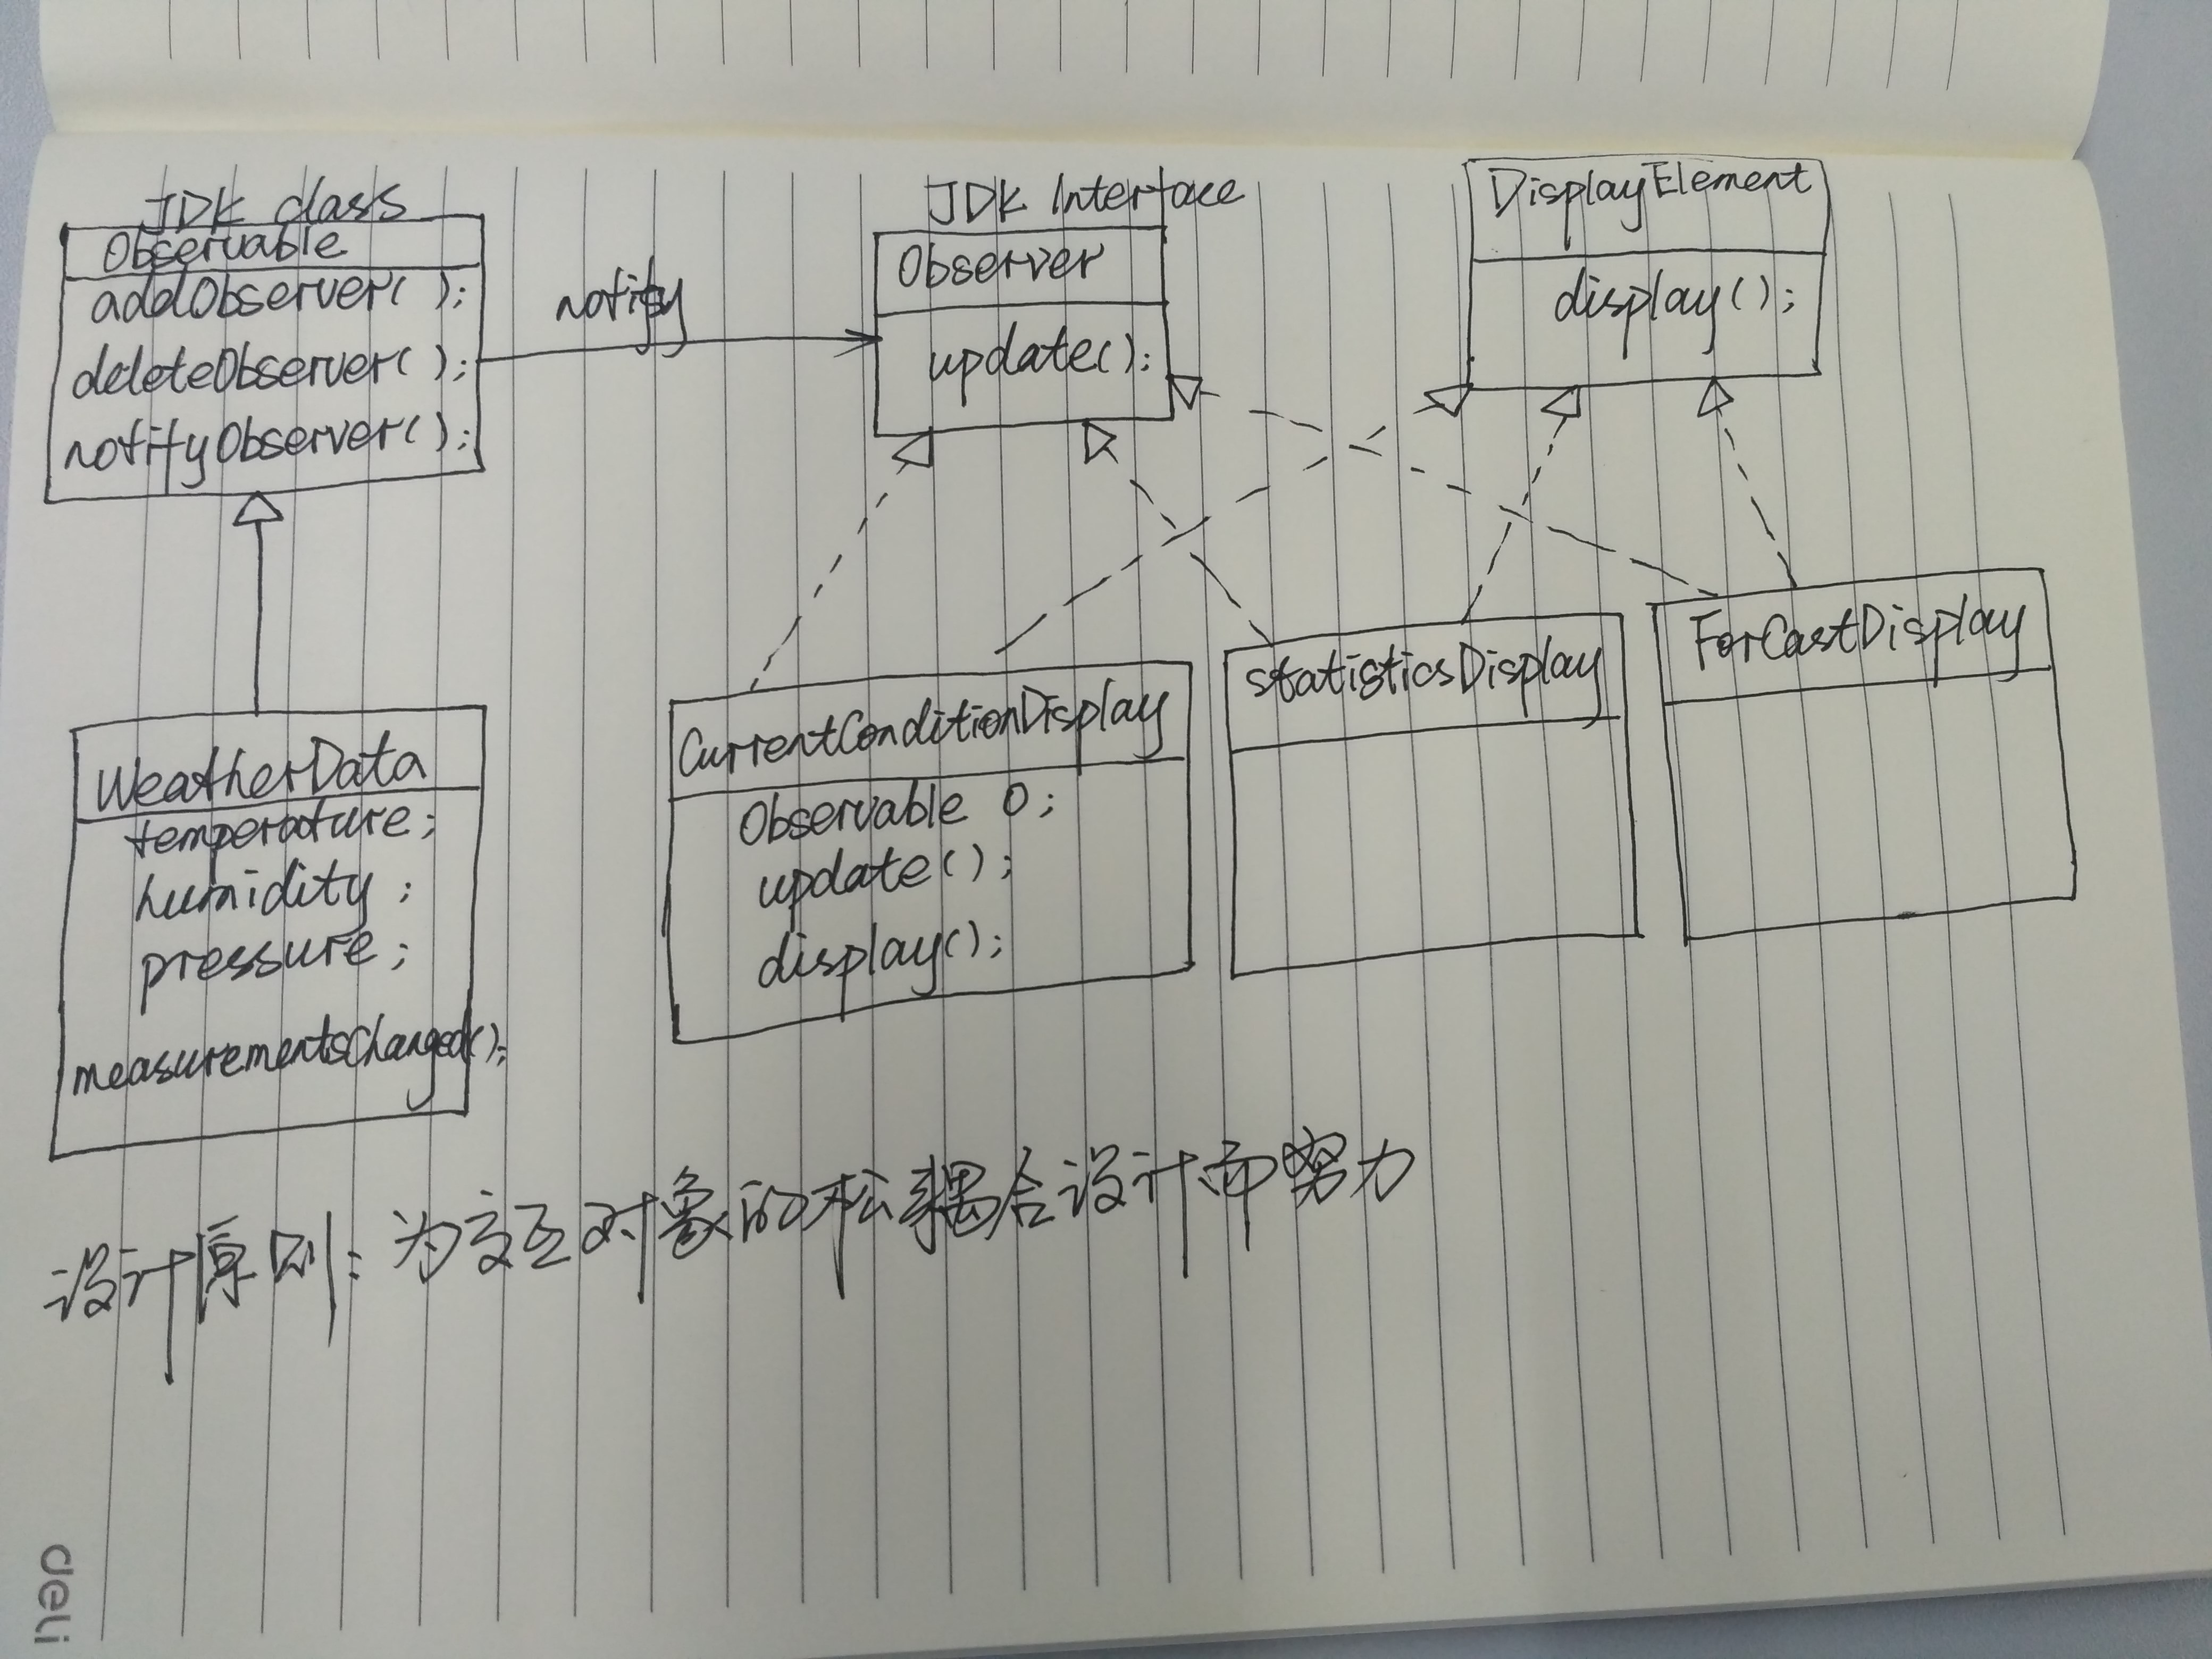 JDK class
Observable
addObserver( );
deleteObserver( );
notifyObserver( );
notify
JDK Interface
Observer
update();
DisplayElement
display();
WeatherData
temperature;
humidity;
pressure;
measurementsChanged();
CurrentConditionDisplay
Observable O;
update();
display();
statisticsDisplay
ForCastDisplay
设计原则：为交互对象的松耦合设计而努力
deli